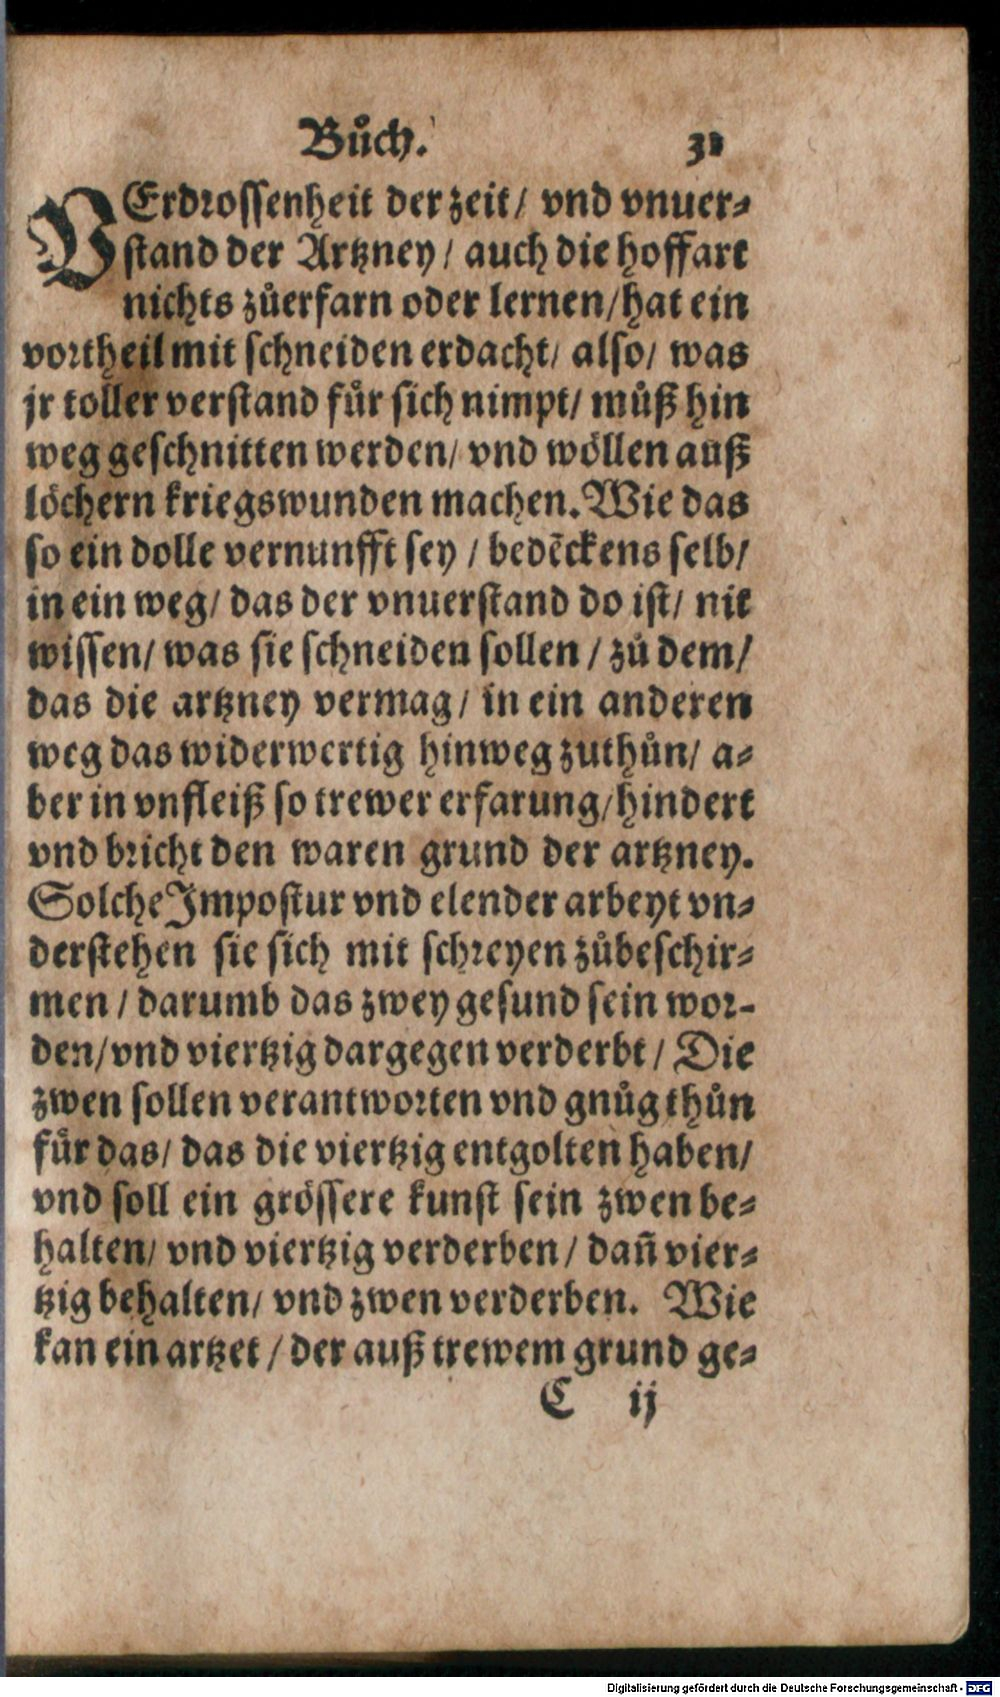 Bůch. 31
VErdrossenheit der zeit/ vnd vnuer⸗
stand der Artzney/ auch die hoffart
nichts zůerfarn oder lernen/hat ein
vortheil mit schneiden erdacht/ also/ was
jr toller verstand für sich nimpt/ můß hin
weg geschnitten werden/ vnd wöllen auß
löchern kriegswunden machen. Wie das
so ein dolle vernunfft sey / bedēckens selb/
in ein weg/ das der vnuerstand do ist/ nit
wissen/ was sie schneiden sollen / zů dem/
das die artzney vermag/ in ein anderen
weg das widerwertig hinweg zuthůn/ a⸗
ber in vnfleiß so trewer erfarung/hindert
vnd bricht den waren grund der artzney.
Solche Impostur vnd elender arbeyt vn⸗
derstehen sie sich mit schreyen zůbeschir⸗
men / darumb das zwey gesund sein wor-
den/vnd viertzig dargegen verderbt/ Die
zwen sollen verantworten vnd gnůg thůn
für das/ das die viertzig entgolten haben/
vnd soll ein grössere kunst sein zwen be⸗
halten/ vnd viertzig verderben / dañ vier⸗
tzig behalten/ vnd zwen verderben. Wie
kan ein artzet / der auß trewem grund ge⸗
C ij
Digitalisierung gefördert durch die Deutsche Forschungsgemeinschaft - DFG